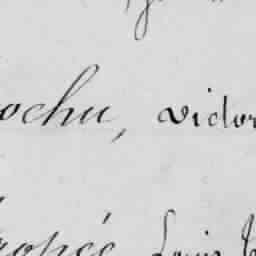 ochu, victor
ropée Louis